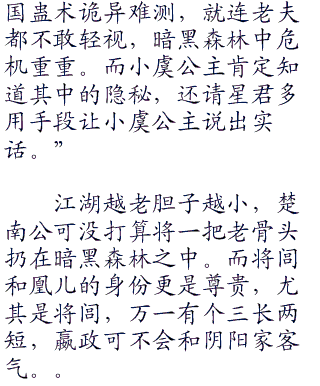 国蛊术诡异难测，就连老夫
都不敢轻视，暗黑森林中危
机重重。而小虞公主肯定知
道其中的隐秘，还请星君多
用手段让小虞公主说出实
话。”
江湖越老胆子越小，楚
南公可没打算将一把老骨头
扔在暗黑森林之中。而将闾
和凰儿的身份更是尊贵，尤
其是将闾，万一有个三长两
短，嬴政可不会和阴阳家客
气。。